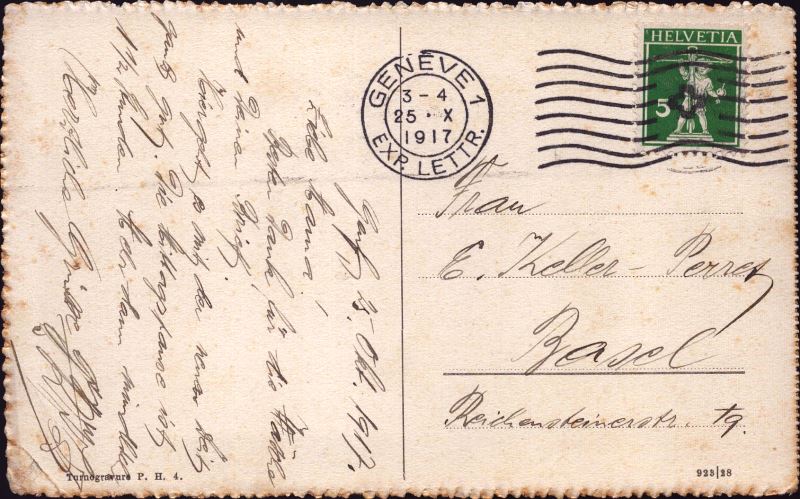 Genf, 25. Okt. 1917.
Liebe Mama!
Besten Dank für die Karte
und Deinen Brief.
Hier geht es mit der neuen Zeit
ganz gut. Die Mittagspause ist
1 1/2 Stunden
Herzliche Grüsse
GENÈVE 1
3-4
25 · X
1917
EXP. LETTR.
HELVETIA
5
Frau
E. Keller-Perret
Basel
Reichensteinerstr. 19.
Turnogravure P. H. 4.
923|28